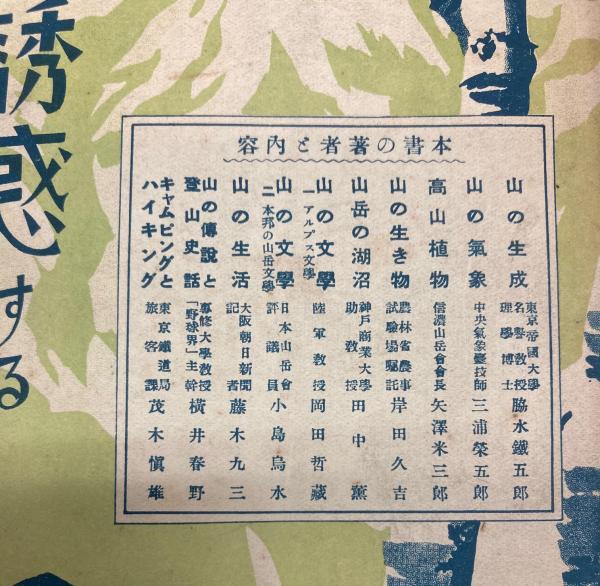 誘惑する
本書の著者と内容
山の生成 東京帝國大學名譽教授 理學博士 脇水鐵五郎
山の氣象 中央氣象臺技師 三浦榮五郎
高山植物 信濃山岳會會長 矢澤米三郎
山の生き物 農林省農事試驗場囑託 岸田久吉
山岳の湖沼 神戸商業大學助教授 田中薰
山の文學 一アルプス文學 陸軍教授 岡田哲藏
山の文學 二本邦の山岳文學 日本山岳會評議員 小島烏水
山の生活 大阪朝日新聞記者 藤木九三
山の傳說と登山史話 專修大學教授「野球界」主幹 橫井春野
キャムピングとハイキング 東京鐵道局旅客課 茂木愼雄